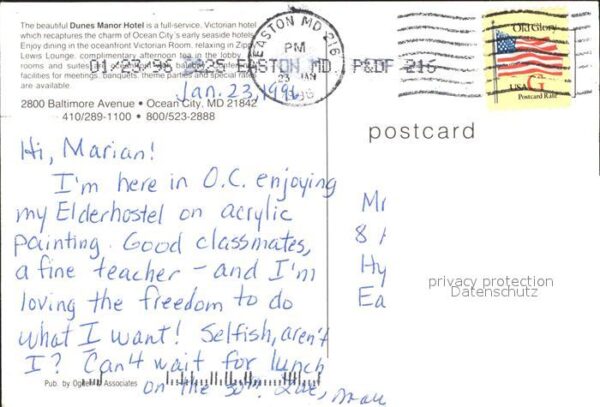 The beautiful Dunes Manor Hotel is a full-service, Victorian hotel
which recaptures the charm of Ocean City's early seaside hotels.
Enjoy dining in the oceanfront Victorian Room, relaxing in Zippy
Lewis Lounge, complimentary afternoon tea in the lobby,
rooms and suites
facilities for meetings, banquets, theme parties and special rates
are available.
2800 Baltimore Avenue • Ocean City, MD 21842
410/289-1100 • 800/523-2888
EASTON MD 216
PM
23 JAN
1996
01-23-96 2325 EASTON MD P&DF 216
Old Glory
USA G
Postcard Rate
postcard
Jan. 23, 1996
Hi, Marian!
I'm here in O.C. enjoying
my Elderhostel on acrylic
painting. Good classmates,
a fine teacher – and I'm
loving the freedom to do
what I want! Selfish, aren't
I? Can't wait for lunch
on the 30th. Love,
Mr
8
Hy
Ea
privacy protection
Datenschutz
Pub. by Ogden Associates